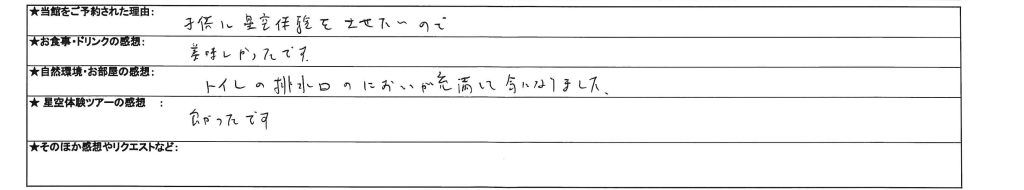 ★当館をご予約された理由：
子供に星空体験をさせたいので
★お食事・ドリンクの感想：
美味しかったです。
★自然環境・お部屋の感想：
トイレの排水口のにおいが充満して気になりました。
★ 星空体験ツアーの感想　：
良かったです
★そのほか感想やリクエストなど：